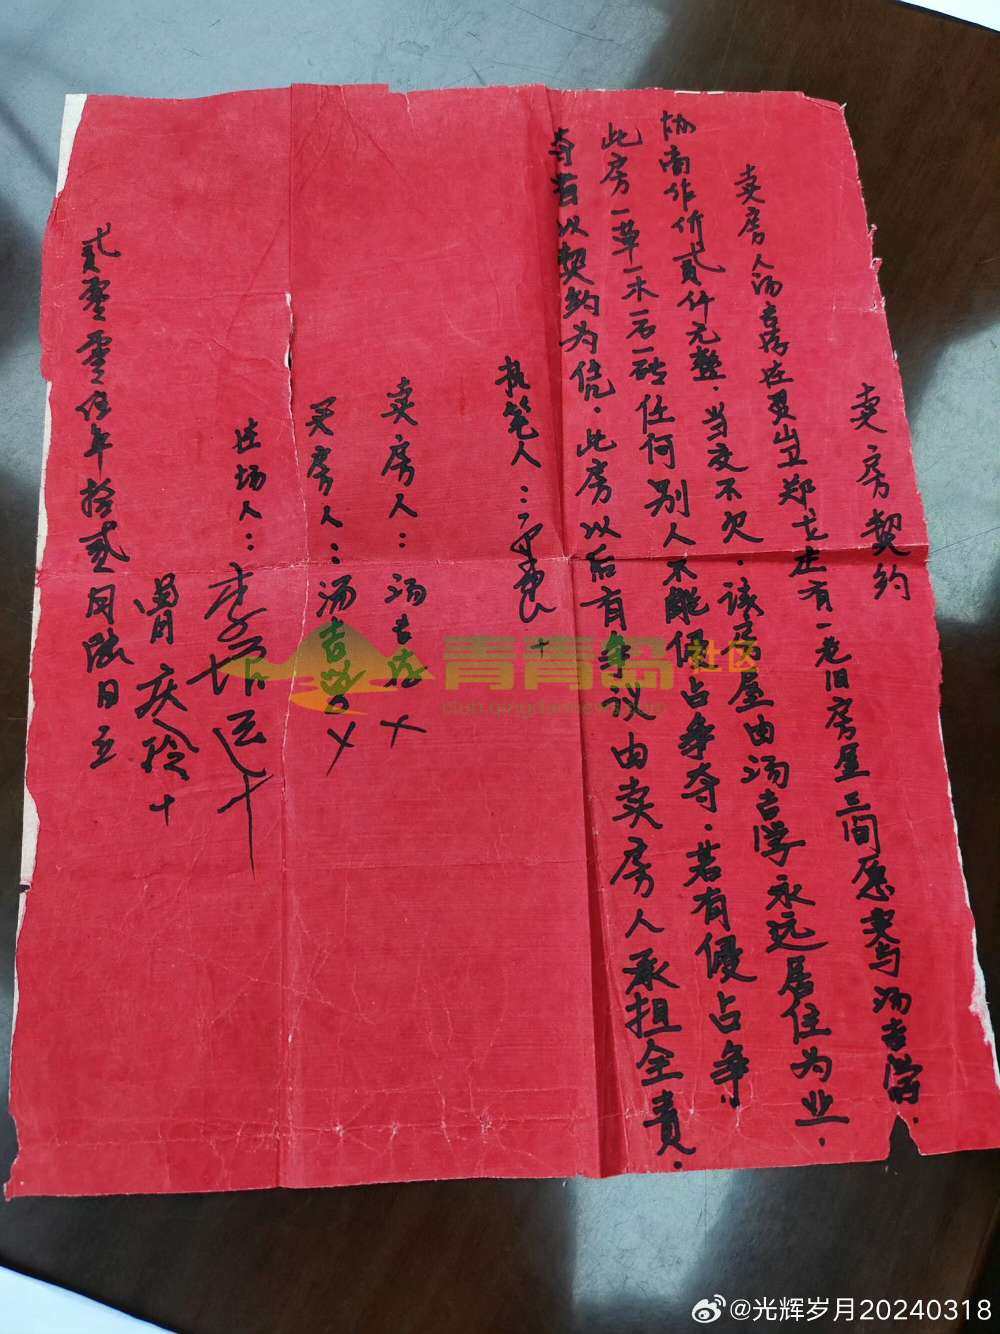 卖房契约
卖房人汤吉 在灵山卫郑戈庄有一老旧房屋三间愿卖与汤吉学.
协商作价贰仟元整.当交不欠.该房屋由汤吉学永远居住为业.
此房一草一木一石一砖任何别人不能侵占争夺.若有侵占争
夺者以契约为凭.此房以后有争议由卖房人承担全责.
执笔人: 十
卖房人:汤吉 乂
买房人:汤吉 乂
在场人:李 十
庆 十
贰零零伍年拾贰月陆日立
青青岛社区
club.qingdaonews.com
@光辉岁月20240318